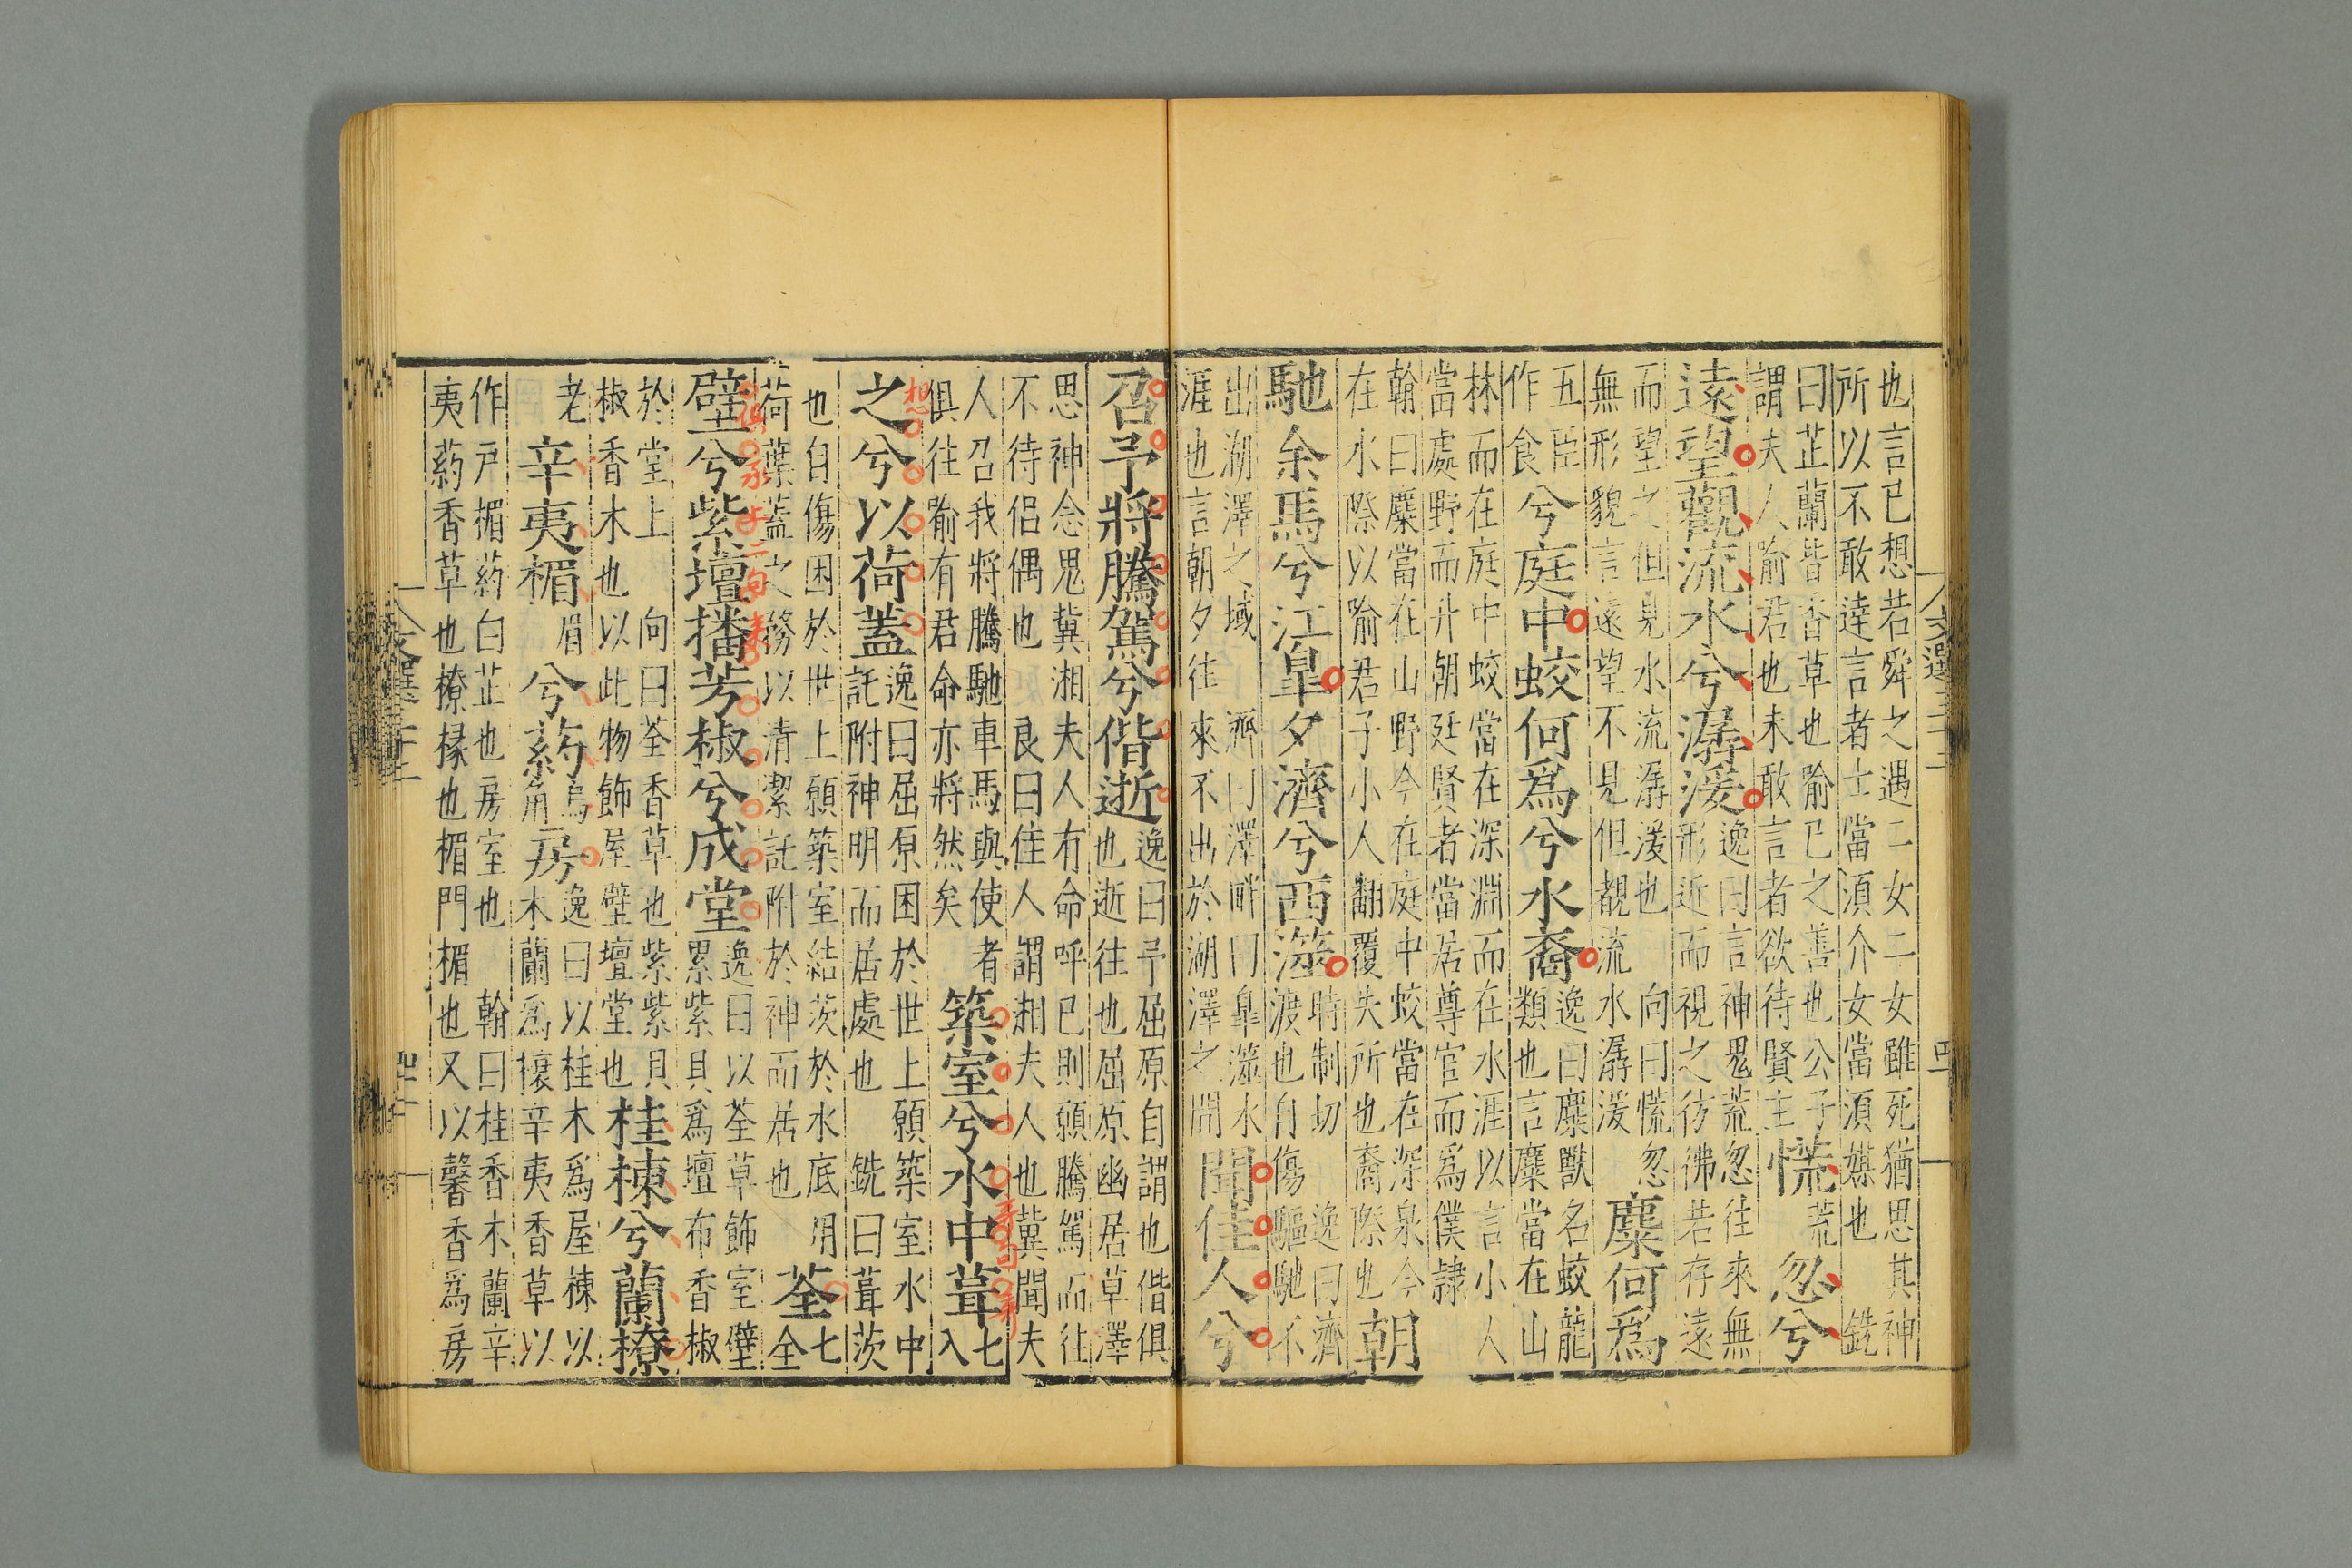 也言已想若舜之遇二女二女雖死猶思其神
所以不敢達言者士當須介女當須媒也 銑
曰芷蘭皆香草也喻己之善也公子
謂夫人喻君也未敢言者欲待賢主慌荒忽兮
遠望觀流水兮潺湲逸曰言神鬼荒忽往來無
形近而視之彷彿若存遠
而望之但見水流潺湲也 向曰慌忽
無形貌言遠望不見但覩流水潺湲麋何爲
五臣
作食兮庭中蛟何爲兮水裔逸曰麋獸名蛟龍
類也言麋當在山
林而在庭中蛟當在深淵而在水涯以言小人
當處野而升朝廷賢者當居尊官而爲僕隸
翰曰麋當在山野今在庭中蛟當在深泉今
在水際以喻君子小人翻覆失所也裔際也朝
馳余馬兮江皐夕濟兮西澨時制切 逸曰濟
渡也自傷驅馳不
出湖澤之域 濟曰澤畔曰皐澨水
涯也言朝夕往來不出於湖澤之間聞佳人兮
召予將騰駕兮偕逝逸曰予屈原自謂也偕俱
也逝往也屈原幽居草澤
思神念鬼冀湘夫人有命呼已則願騰駕而往
不待侶偶也 良曰佳人謂湘夫人也冀聞夫
人召我將騰馳車馬與使者
俱往喻有君命亦將然矣築室兮水中葺七入
之兮以荷蓋逸曰屈原困於世上願築室水中
託附神明而居處也 銑曰葺茨
也自傷困於世上願築室結茨於水底用
荷葉蓋之務以清潔託附於神而居也荃七全
壁兮紫壇播芳椒兮成堂逸曰以荃草飾室壁
累紫貝爲壇布香椒
於堂上 向曰荃香草也紫紫貝
椒香木也以此物飾屋壁壇堂也桂棟兮蘭橑
老辛夷楣眉兮葯烏角房逸曰以桂木爲屋棟以
木蘭爲榱辛夷香草以
作戶楣葯白芷也房室也 翰曰桂香木蘭辛
夷葯香草也橑椽也楣門楣也又以馨香爲房